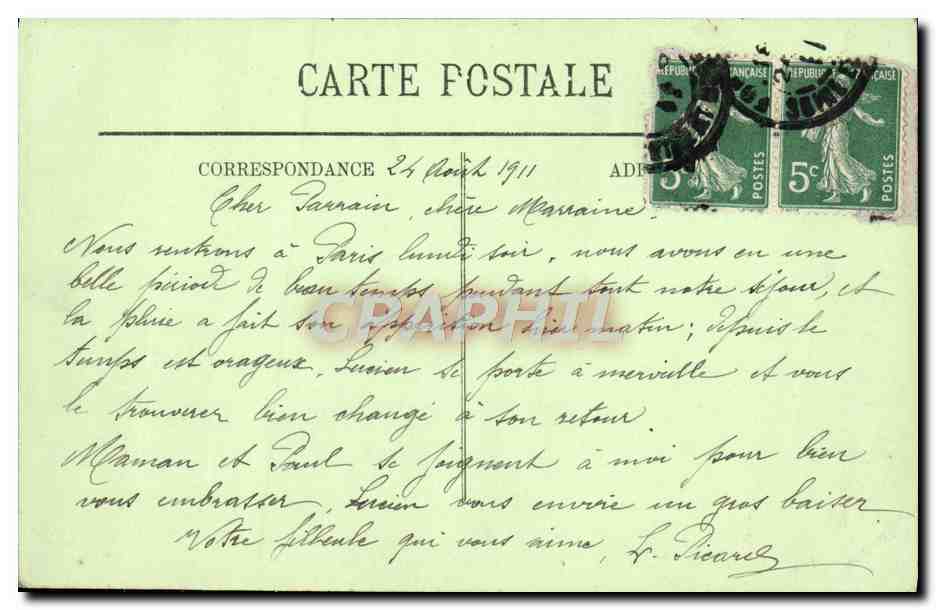 CARTE POSTALE
RÉPUBLIQUE FRANÇAISE
5c POSTES
RÉPUBLIQUE FRANÇAISE
5c POSTES
CORRESPONDANCE 24 Août 1911
Cher Parrain, chère Marraine,
Nous rentrons à Paris lundi soir, nous avons eu une
belle période de beau temps pendant tout notre séjour, et
la pluie a fait son apparition hier matin; depuis le
temps est orageux. Lucien se porte à merveille et vous
le trouverez bien changé à son retour.
Maman et Paul se joignent à moi pour bien
vous embrasser, Lucien vous envoie un gros baiser
Votre filleule qui vous aime, L. Picard
CPAPHIL